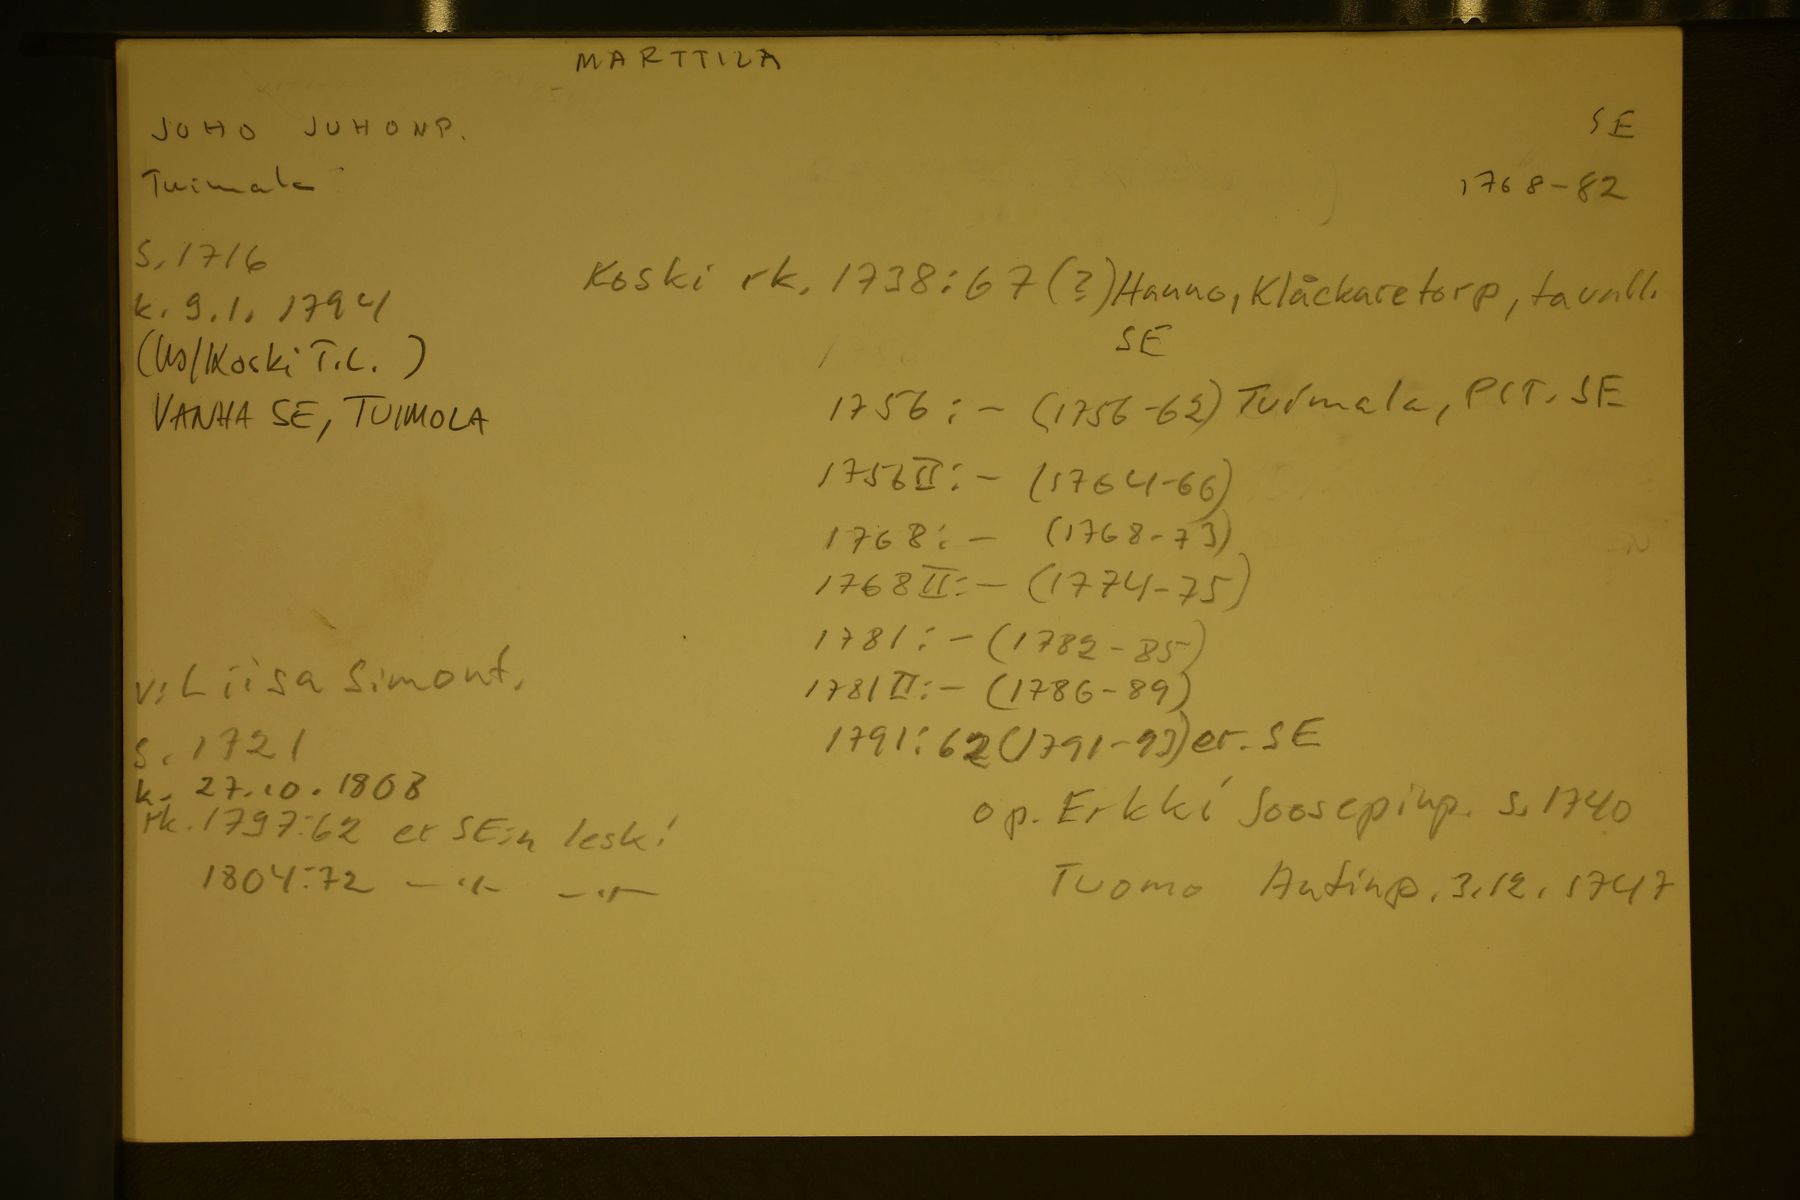 MARTTILA
JUHO JUHONP.
SE
Tuimala
1768-82
s. 1716
k. 9.1. 1794
(Ko/Koski T.L. )
VANHA SE, TUIMOLA
Koski rk. 1738:67 (?) Hanno, Klåckaretorp, tavall.
SE
1756:- (1756-62) Tuimala, PIT. SE
1756II:- (1764-66)
1768:- (1768-73)
1768II:- (1774-75)
1781:- (1782-85)
1781II:- (1786-89)
1791:62 (1791-93) er. SE
v: Liisa Simont.
s. 1721
k. 27.10. 1808
rk. 1797:62 er SE:n leski
1804:72 -"- -"-
op. Erkki Joosepinp. s. 1740
Tuomo Antinp. 3.12. 1747